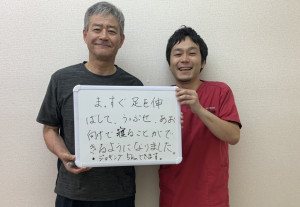 ま、すぐ足を伸
ばして、うつぶせ、あお
向けで寝ることがで
きるようになりました。
・ジョギング 5kmできます。